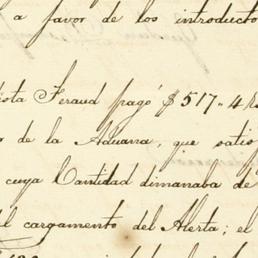 a favor de los introducto
ista Feraud pagó $ 517" 4 R
de la Aduana, que satis
cuya Cantidad dimanaba de
el cargamento del Alerta; el